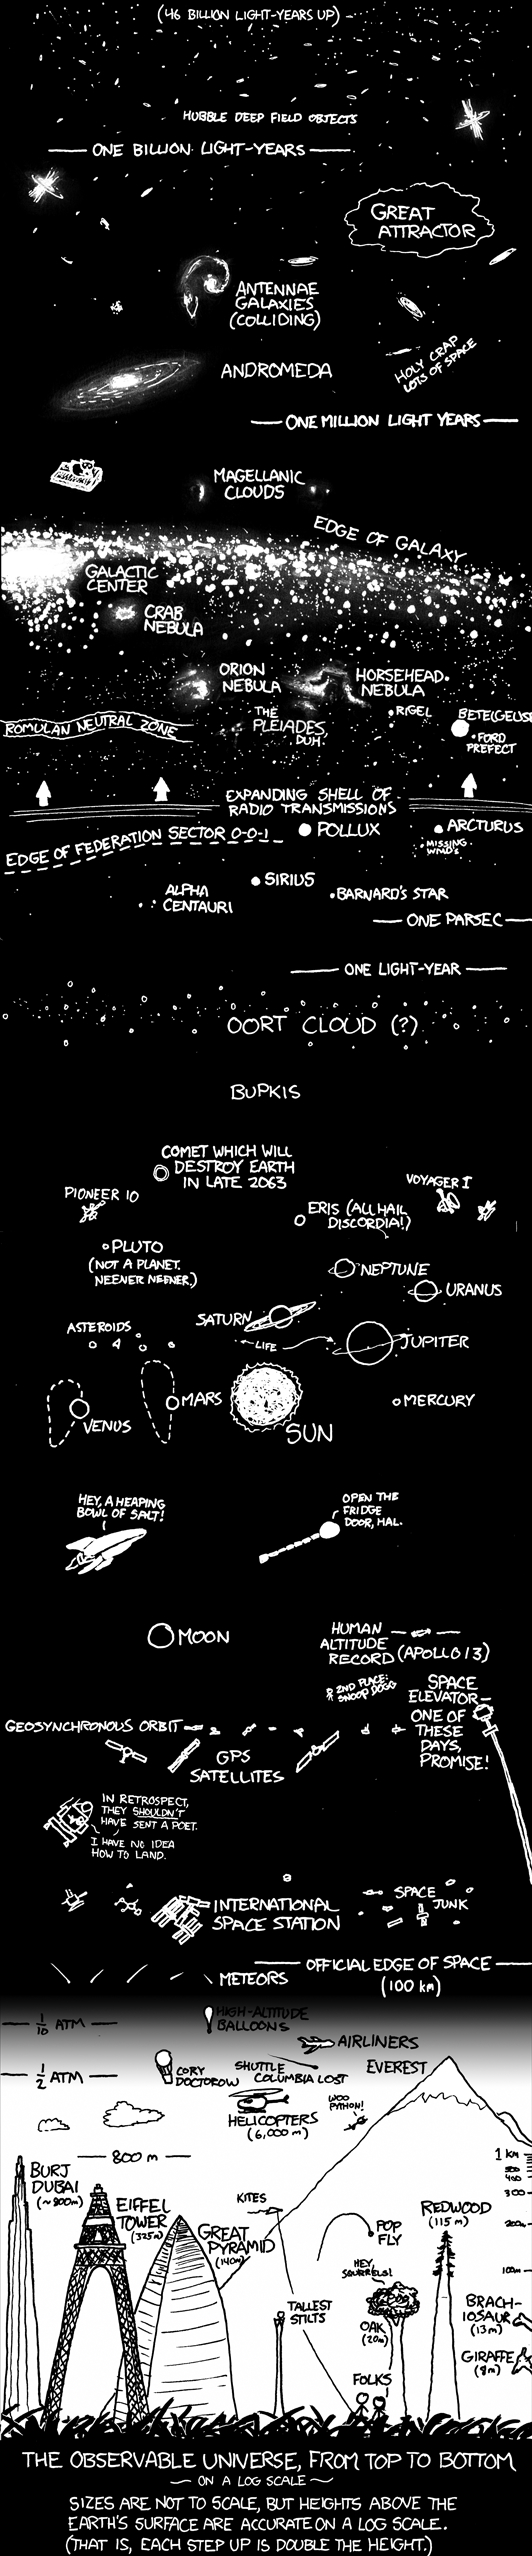 (46 BILLION LIGHT-YEARS UP)
HUBBLE DEEP FIELD OBJECTS
ONE BILLION LIGHT-YEARS
GREAT
ATTRACTOR
ANTENNAE
GALAXIES
(COLLIDING)
HOLY CRAP
LOTS OF SPACE
ANDROMEDA
ONE MILLION LIGHT YEARS
MAGELLANIC
CLOUDS
EDGE OF GALAXY
GALACTIC
CENTER
CRAB
NEBULA
ORION
NEBULA
HORSEHEAD
NEBULA
THE
PLEIADES,
DUH.
RIGEL
BETELGEUSE
FORD
PREFECT
ROMULAN NEUTRAL ZONE
EXPANDING SHELL OF
RADIO TRANSMISSIONS
EDGE OF FEDERATION SECTOR 0-0-1
POLLUX
ARCTURUS
MISSING
WMD's
SIRIUS
ALPHA
CENTAURI
BARNARD'S STAR
ONE PARSEC
ONE LIGHT-YEAR
OORT CLOUD (?)
BUPKIS
COMET WHICH WILL
DESTROY EARTH
IN LATE 2063
PIONEER 10
VOYAGER I
ERIS (ALL HAIL
DISCORDIA!)
PLUTO
(NOT A PLANET.
NEENER NEENER.)
NEPTUNE
URANUS
SATURN
ASTEROIDS
LIFE
JUPITER
MARS
VENUS
SUN
MERCURY
HEY, A HEAPING
BOWL OF SALT!
OPEN THE
FRIDGE
DOOR, HAL.
MOON
HUMAN
ALTITUDE
RECORD (APOLLO 13)
2ND PLACE:
SNOOP DOGG
SPACE
ELEVATOR—
ONE OF
THESE
DAYS,
PROMISE!
GEOSYNCHRONOUS ORBIT
GPS
SATELLITES
IN RETROSPECT,
THEY SHOULDN'T
HAVE SENT A POET.
I HAVE NO IDEA
HOW TO LAND.
INTERNATIONAL
SPACE STATION
SPACE
JUNK
OFFICIAL EDGE OF SPACE
(100 km)
METEORS
HIGH-ALTITUDE
BALLOONS
1/10 ATM
AIRLINERS
1/2 ATM
CORY
DOCTOROW
SHUTTLE
COLUMBIA LOST
EVEREST
HELICOPTERS
(6,000 m)
WOO
PYTHON!
800 m
1 KM
500
400
300
200m
100m
BURJ
DUBAI
(~800m)
EIFFEL
TOWER
(325m)
GREAT
PYRAMID
(140m)
KITES
POP
FLY
REDWOOD
(115 m)
HEY,
SQUIRRELS!
TALLEST
STILTS
OAK
(20m)
BRACH-
IOSAUR
(13m)
GIRAFFE
(8m)
FOLKS
THE OBSERVABLE UNIVERSE, FROM TOP TO BOTTOM
— ON A LOG SCALE —
SIZES ARE NOT TO SCALE, BUT HEIGHTS ABOVE THE
EARTH'S SURFACE ARE ACCURATE ON A LOG SCALE.
(THAT IS, EACH STEP UP IS DOUBLE THE HEIGHT.)